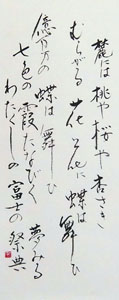 麓には桃や桜や杏さき
むらがる花花に蝶は舞ひ
億万万の蝶は舞ひ
七色の霞たなびく
夢みる
わたくしの富士の祭典